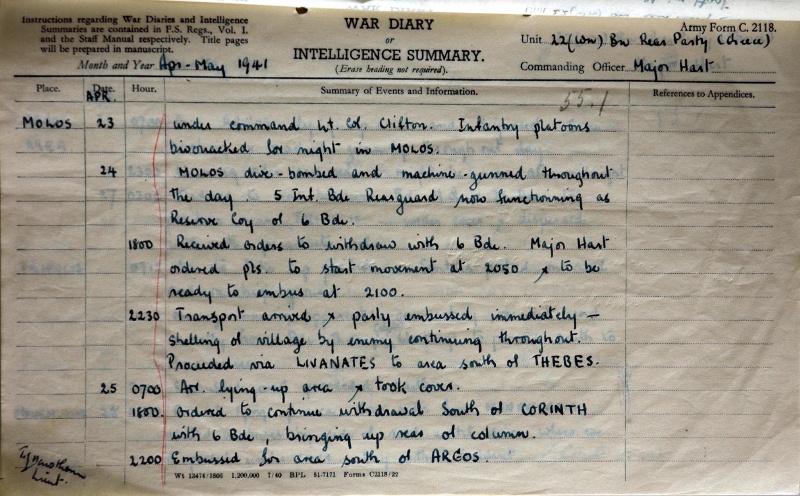 Instructions regarding War Diaries and Intelligence
Summaries are contained in F.S. Regs., Vol. I.
and the Staff Manual respectively. Title pages
will be prepared in manuscript.
WAR DIARY
or
INTELLIGENCE SUMMARY.
(Erase heading not required).
Army Form C. 2118.
Month and Year Apr - May 1941
Unit 22 (Wn) Bn Rear Party (Greece)
Commanding Officer Major Hart
Place. Date. Hour. Summary of Events and Information. References to Appendices.
APR. 55.1
MOLOS 23 under command Lt. Col. Clifton. Infantry platoons
bivouacked for night in MOLOS.
24 MOLOS dive-bombed and machine-gunned throughout
the day. 5 Inf. Bde Rearguard now functionning as
Reserve Coy of 6 Bde.
1800 Received orders to withdraw with 6 Bde. Major Hart
ordered pls. to start movement at 2050 & to be
ready to embus at 2100.
2230 Transport arrived & party embussed immediately —
shelling of village by enemy continuing throughout.
Proceeded via LIVANATES to area south of THEBES.
25 0700 Arr. lying-up area & took cover.
1800. Ordered to continue withdrawal South of CORINTH
with 6 Bde, bringing up rear of column.
2200 Embussed for area south of ARGOS.
Lieut.
Wt 13474/1806 1,200,000 7/40 BPL 51-7171 Forms C2118/22